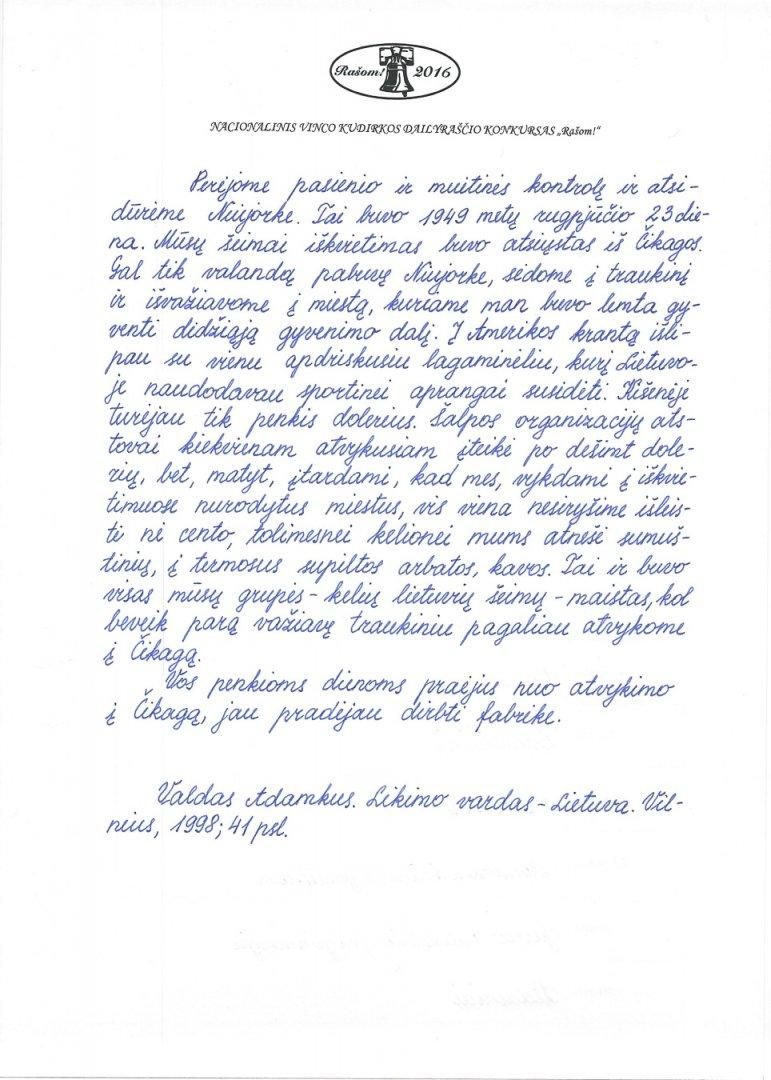 Rašom! 2016
NACIONALINIS VINCO KUDIRKOS DAILYRAŠČIO KONKURSAS „Rašom!“
Perėjome pasienio ir muitinės kontrolę ir atsi-
dūrėme Niujorke. Tai buvo 1949 metų rugpjūčio 23 die-
na. Mūsų šeimai iškvietimas buvo atsiųstas iš Čikagos.
Gal tik valandą pabuvę Niujorke, sėdome į traukinį
ir išvažiavome į miestą, kuriame man buvo lemta gy-
venti didžiąją gyvenimo dalį. Į Amerikos krantą išli-
pau su vienu apdriskusiu lagaminėliu, kurį Lietuvo-
je naudodavau sportinei aprangai susidėti. Kišenėje
turėjau tik penkis dolerius. Šalpos organizacijų ats-
tovai kiekvienam atvykusiam įteikė po dešimt dole-
rių, bet, matyt, įtardami, kad mes, vykdami į iškvie-
timuose nurodytus miestus, vis viena nesiryšime išleis-
ti nė cento, tolimesnei kelionei mums atnešė sumuš-
tinių, į termosus supiltos arbatos, kavos. Tai ir buvo
visas mūsų grupės - kelių lietuvių šeimų - maistas, kol
beveik parą važiavę traukiniu pagaliau atvykome
į Čikagą.
Vos penkioms dienoms praėjus nuo atvykimo
į Čikagą, jau pradėjau dirbti fabrike.
Valdas Adamkus. Likimo vardas - Lietuva. Vil-
nius, 1998; 41 psl.